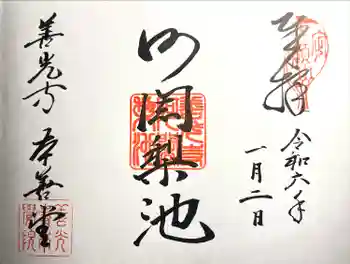 奉拝
令和六年
一月二日
阿闍梨池
善光寺 本善堂